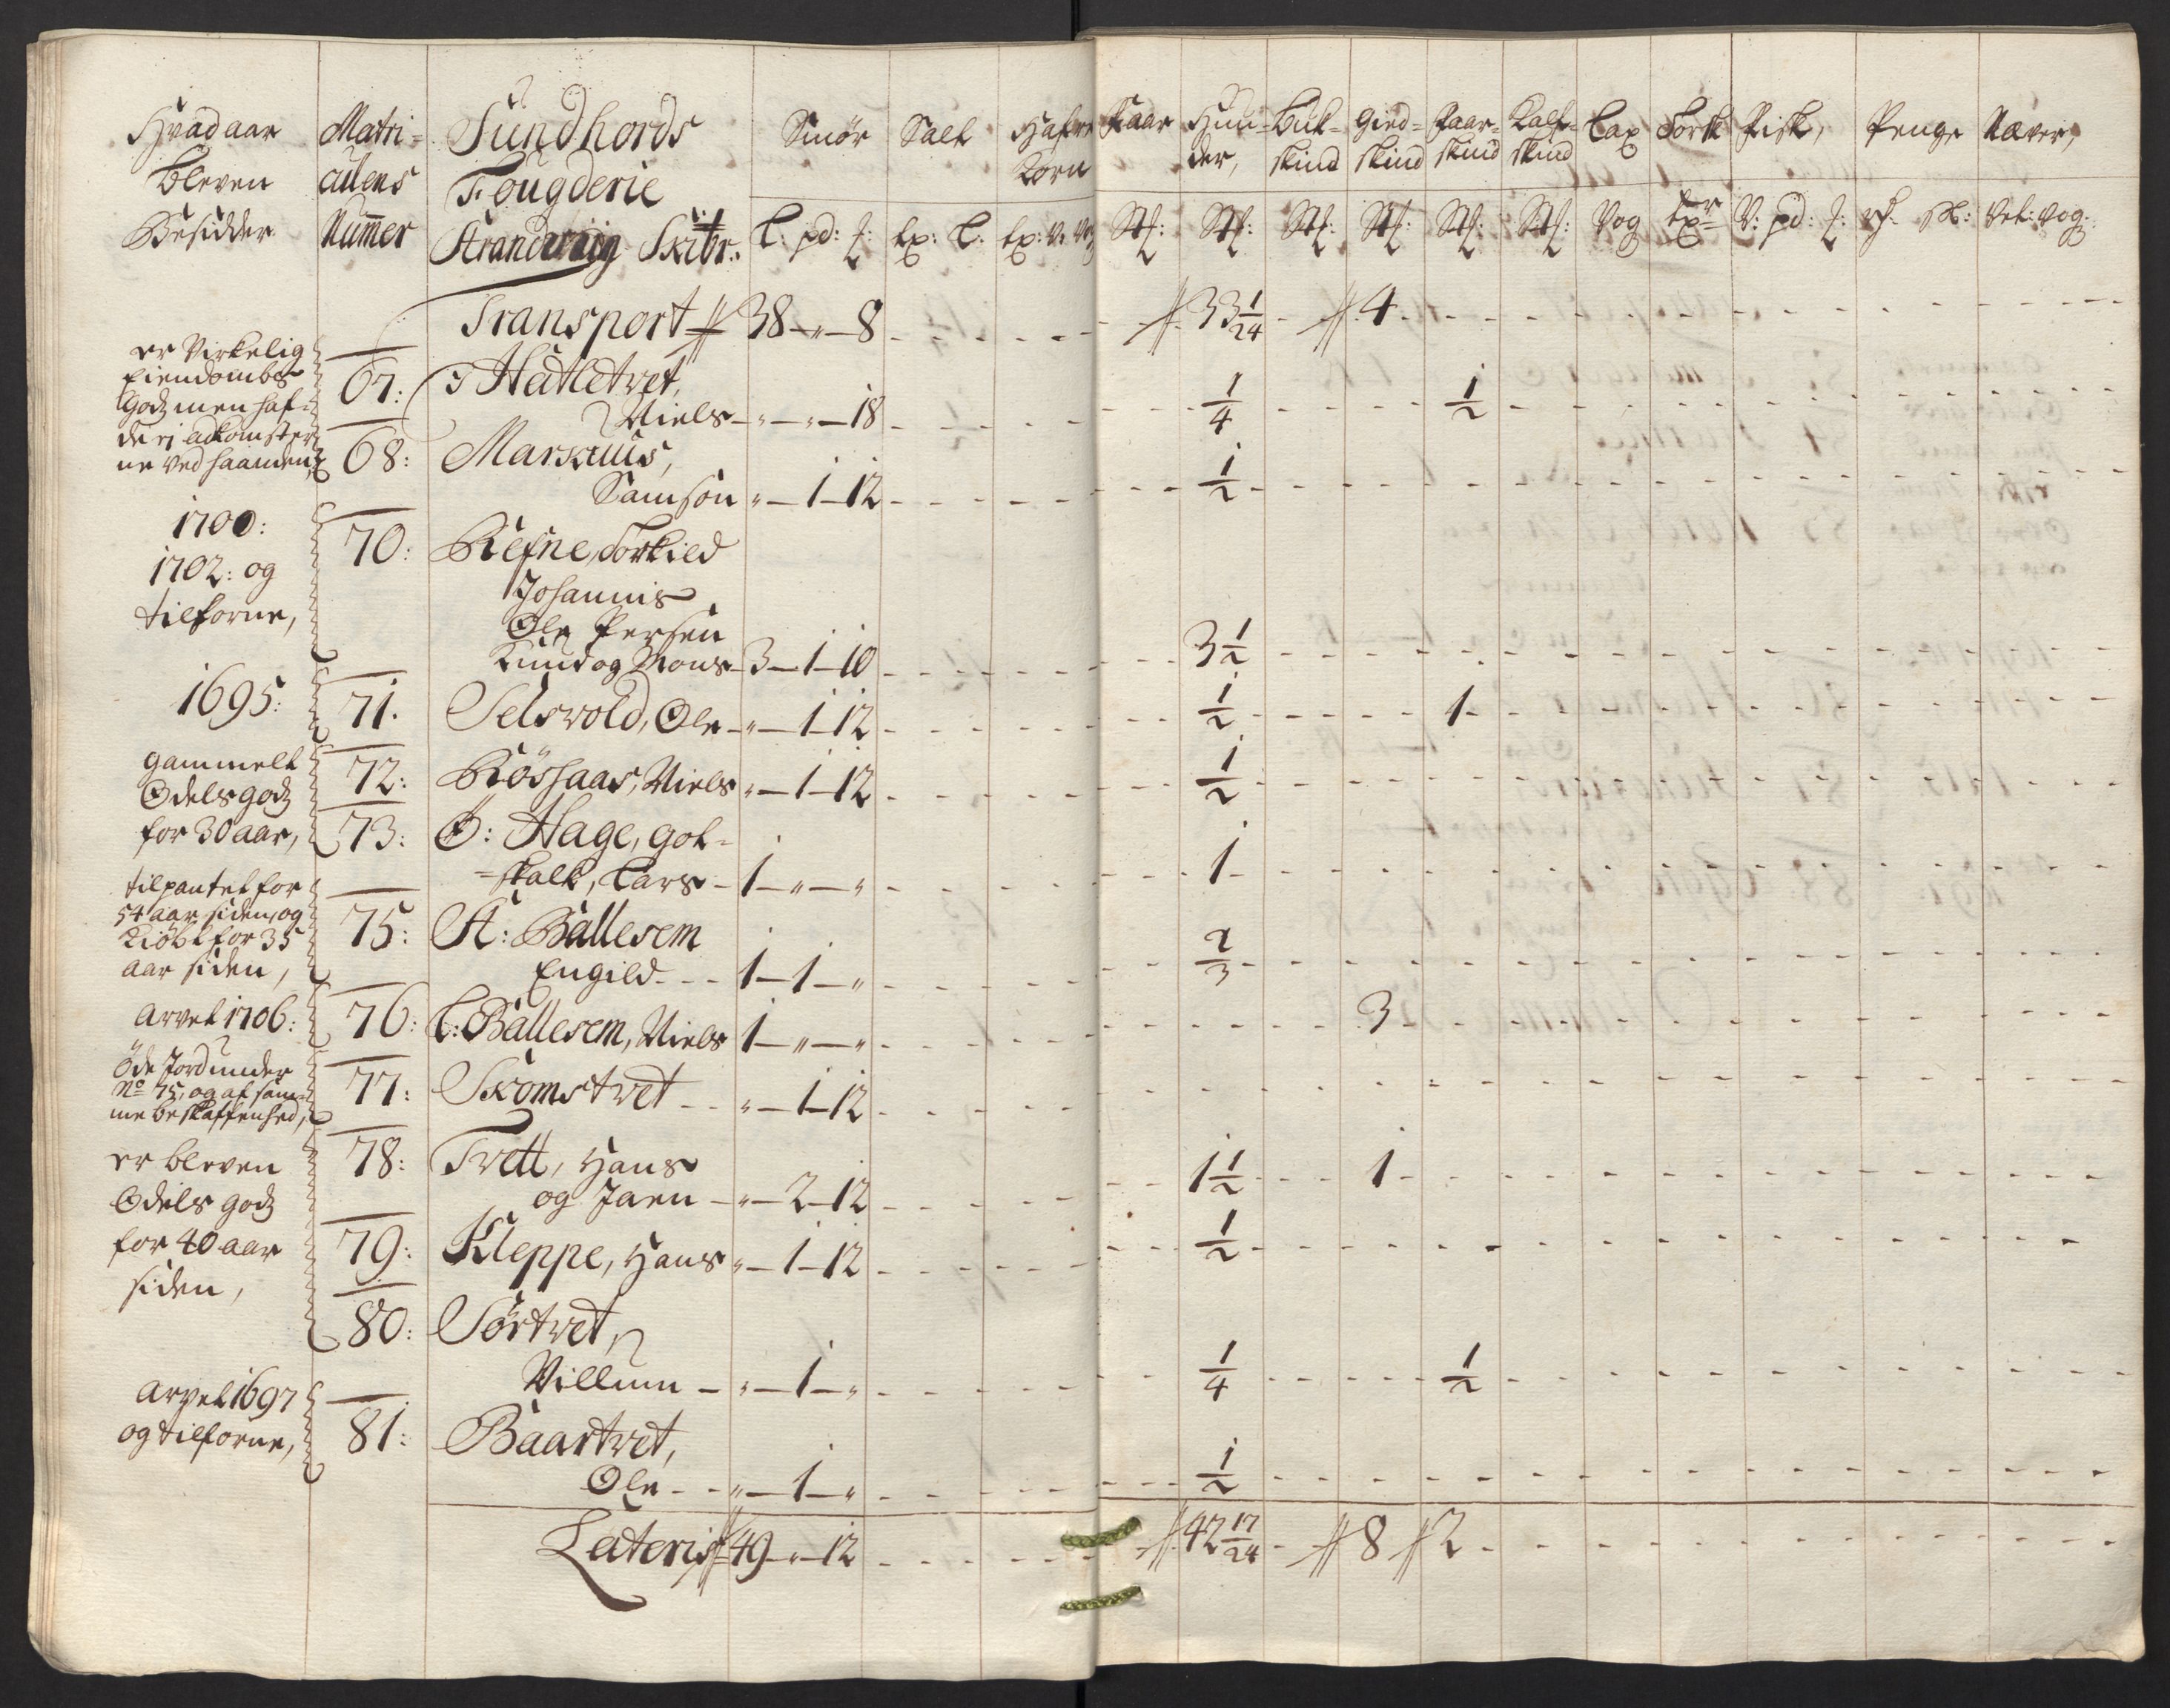 Hvad aar bleven Besidder | Matriculens Nummer | Sundhords Fougderie Strandwiig Skibr: | Smør | Salt | Hafre Korn | Faar | Huuder, | Bukskind | Giedskind | Faarskind | Kalfskind | Lax | Torsk | Fisk, | Penge | Næver,
L: pd: | tp: L: | tp: V: | Stk: | Stk: | Stk: | Stk: | Stk: | Stk: | Vog | V: pd: | vog:
Transport 38 - " - 8 | 33 1/24 | 4
er Virkelig
Eiendombs
Godz men haf-
de ej adkomster
ne ved haanden,
67: Hatletvet,
Niels - " - " - 18 | 1/4 | 1/2
68: Marskuus,
Samson " - 1 - 12 | 1/2
1700:
1702: og
tilforne,
70: Refne, Torkild
Johannis
Ole Persen
Knud og Mons - 3 - 1 - 10 | 3 1/2
1695: 71. Selsvold, Ole - " - 1 - 12 | 1/2 | 1
gammelt
Odelsgodz
for 30 aar,
72: Röshaas, Niels " - 1 - 12 | 1/2
73: Ö: Hage, Got-
=skalk, Lars - 1 - " - " | 1
tilpantet for
54 aar siden, og
Kiöbt for 35
aar siden,
75: St: Ballesem
Engild - - - 1 - 1 - " | 2/3
Arvet 1706: 76: L: Ballesem, Niels 1 - " - " | 3
Öde Jord under
No 75, og af sam-
me beskaffenhed,
77: Skomstvet - - " - 1 - 12
er bleven
Odels godz
for 40 aar
siden,
78: Tvett, Hans
og Jaen - " - 2 - 12 | 1 1/2 | 1
79: Kleppe, Hans " - 1 - 12 | 1/2
80: Sörtvet,
Villum - " - 1 - " | 1/4 | 1/2
Arvet 1697
og tilforne,
81: Baartvet,
Ole - - " - 1 - " | 1/2
Lateris 49 - " - 12 | 42 17/24 | 8 | 2